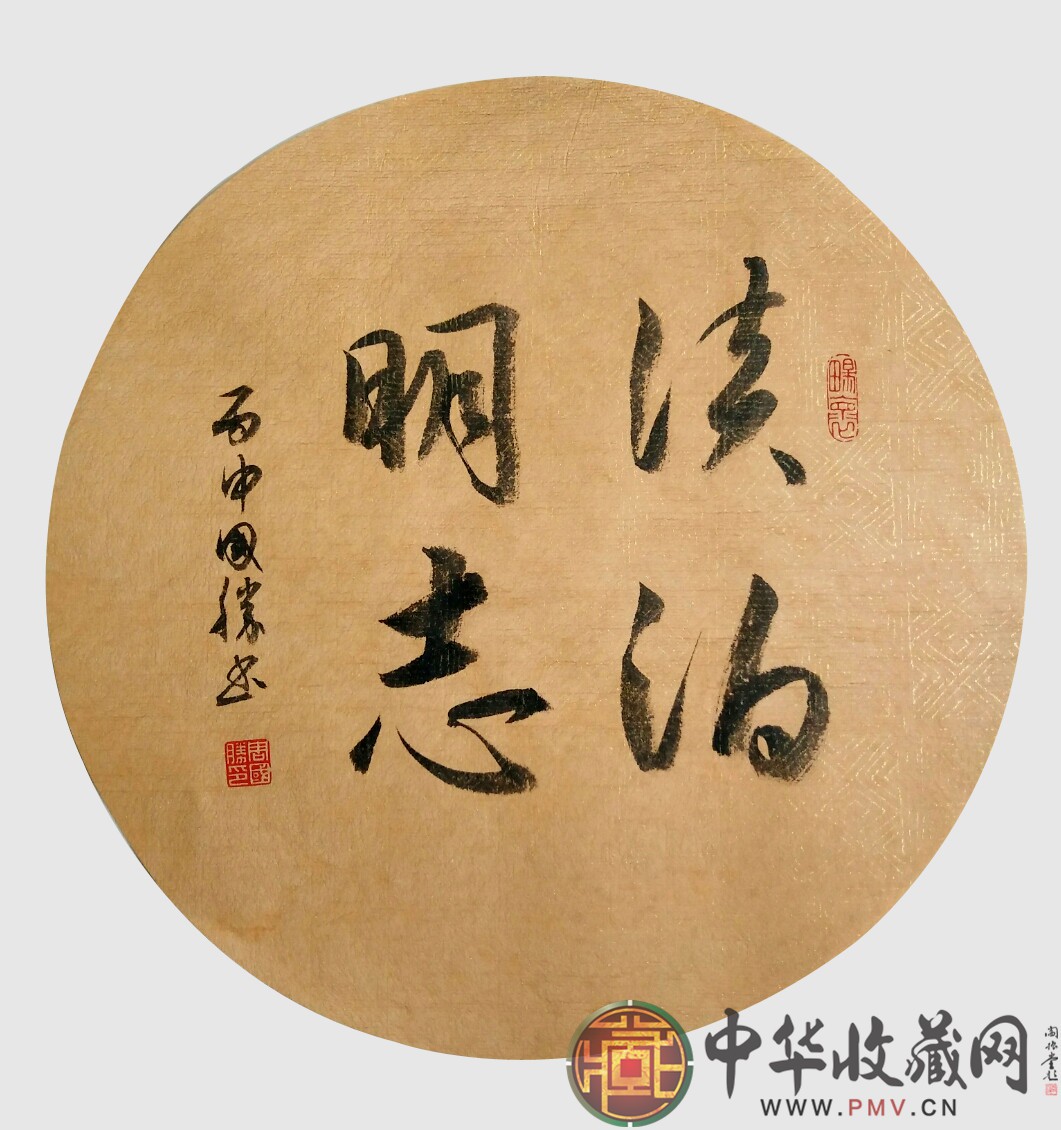 淡泊
明志
丙申国胜书
周國
勝印
中华收藏网
WWW.PMV.CN